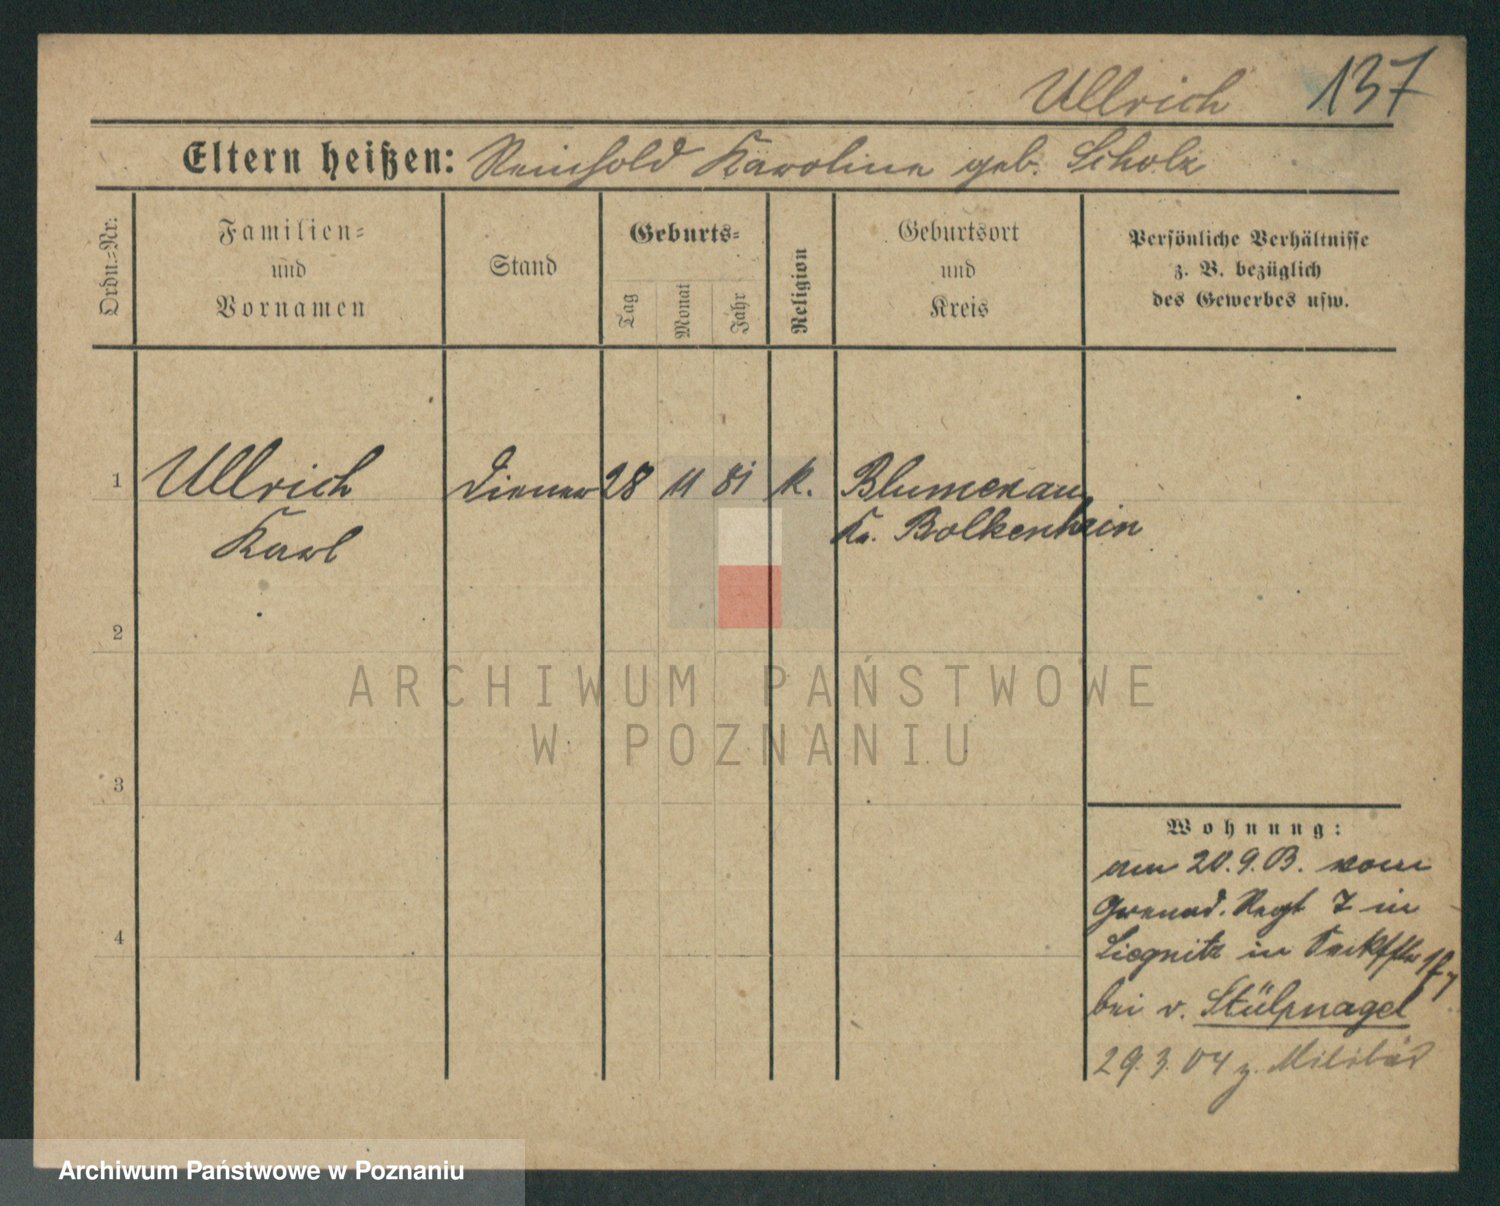 Ullrich 137
Eltern heißen: Reinhold Karoline geb. Scholz
Ordn.-Nr:
Familien-
und
Vornamen
Stand
Geburts-
Tag
Monat
Jahr
Religion
Geburtsort
und
Kreis
Persönliche Verhältnisse
z. B. bezüglich
des Gewerbes usw.
1 Ullrich Diener 28 11 81 k. Blumenau
Karl Kr. Bolkenhain
2
3
4
Wohnung:
am 20.9.B. vom
Grenad. Regt 7 in
Liegnitz in
bei v. Stülpnagel
29.3.04 z. Militär
ARCHIWUM PAŃSTWOWE
W POZNANIU
Archiwum Państwowe w Poznaniu